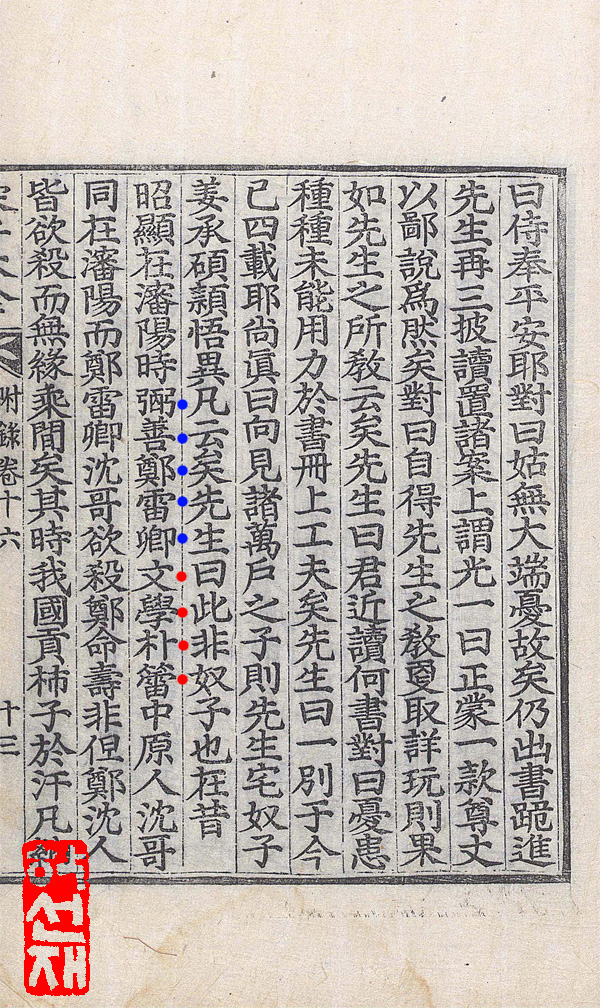 曰侍奉平安耶對曰姑無大端憂故矣仍出書跪進
先生再三披讀置諸案上謂光一曰正蒙一款尊丈
以鄙說爲然矣對曰自得先生之敎更取詳玩則果
如先生之所敎云矣先生曰君近讀何書對曰憂患
種種未能用力於書冊上工夫矣先生曰一別于今
已四載耶尙眞曰向見諸萬戶之子則先生宅奴子
姜承碩頴悟異凡云矣先生曰此非奴子也在昔
昭顯在瀋陽時弼善鄭雷卿文學朴𥶇中原人沈哥
同在瀋陽而鄭雷卿沈哥欲殺鄭命壽非但鄭沈人
皆欲殺而無緣乘間矣其時我國貢柿子於汗凡
附錄卷十六
十三
한선재